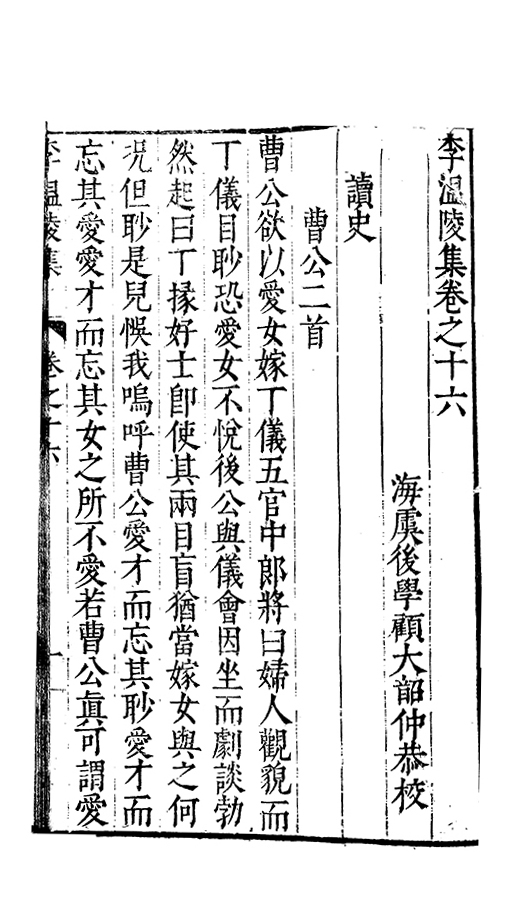 李溫陵集卷之十六
海虞後學顧大韶仲恭校
讀史
曹公二首
曹公欲以愛女嫁丁儀五官中郎將曰婦人觀貌而
丁儀目眇恐愛女不悅後公與儀會因坐而劇談勃
然起曰丁掾好士卽使其兩目盲猶當嫁女與之何
况但眇是兒悞我嗚呼曹公愛才而忘其眇愛才而
忘其愛愛才而忘其女之所不愛若曹公眞可謂愛
李溫陵集 卷之十六 一